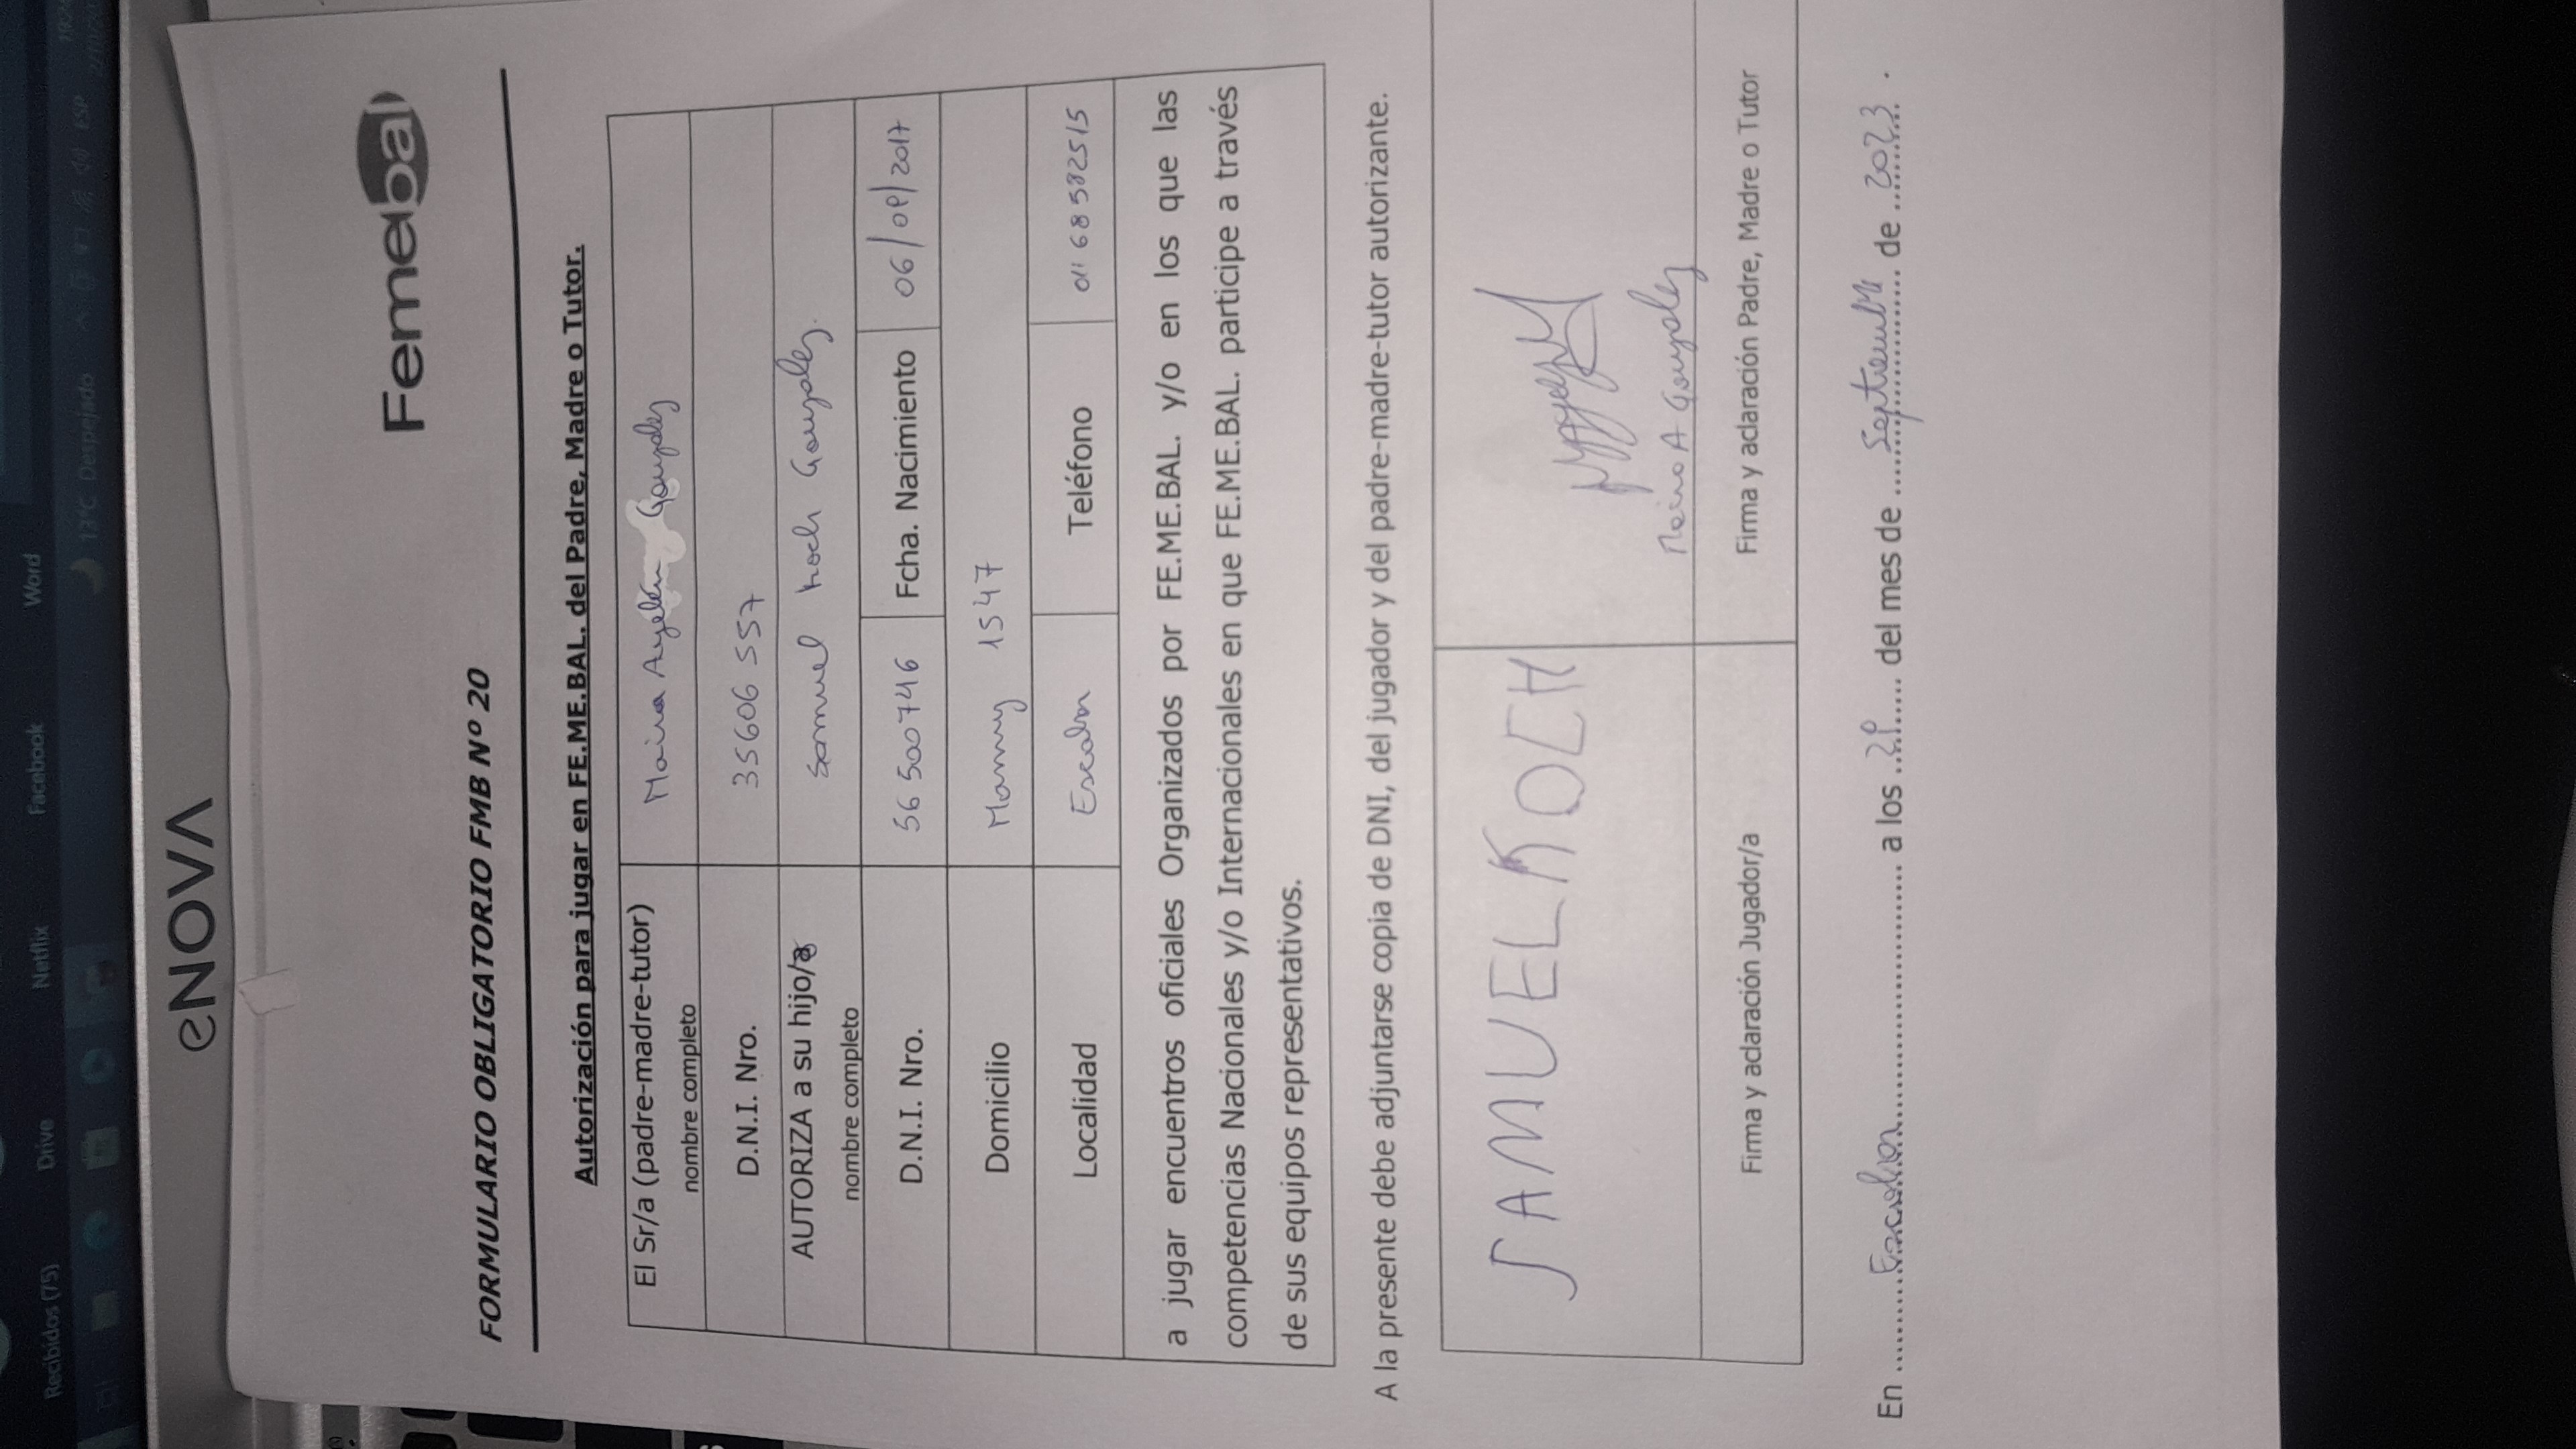 Recibidos (75) Drive Netflix Facebook Word
13°C Despejado ESP
eNOVA
Femebal
FORMULARIO OBLIGATORIO FMB Nº 20
Autorización para jugar en FE.ME.BAL. del Padre, Madre o Tutor.
El Sr/a (padre-madre-tutor) nombre completo Maira Ayelén Gonzalez
D.N.I. Nro. 35606 557
AUTORIZA a su hijo/a nombre completo Samuel Koch Gonzalez.
D.N.I. Nro. 56 500746 Fcha. Nacimiento 06/09/2017
Domicilio 1547
Localidad Escobar Teléfono 011 68582515
a jugar encuentros oficiales Organizados por FE.ME.BAL. y/o en los que las
competencias Nacionales y/o Internacionales en que FE.ME.BAL. participe a través
de sus equipos representativos.
A la presente debe adjuntarse copia de DNI, del jugador y del padre-madre-tutor autorizante.
SAMUEL KOCH
Maira A Gonzalez
Firma y aclaración Jugador/a Firma y aclaración Padre, Madre o Tutor
En Escobar a los 29 del mes de Septiembre de 2023.